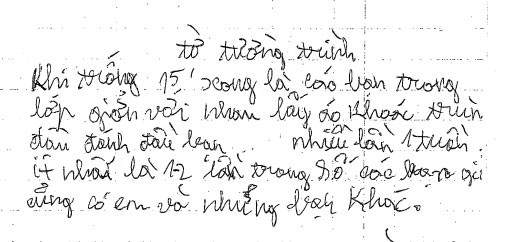 tờ tường trình
Khi trống 15' xong là các bạn trong
lớp giỡn với nhau lấy áo khoác trùm
đầu đánh đầu bạn.. nhiều lần 1 tuần.
ít nhất là 1-2 lần trong số các bạn
cũng có em và những bạn khác.